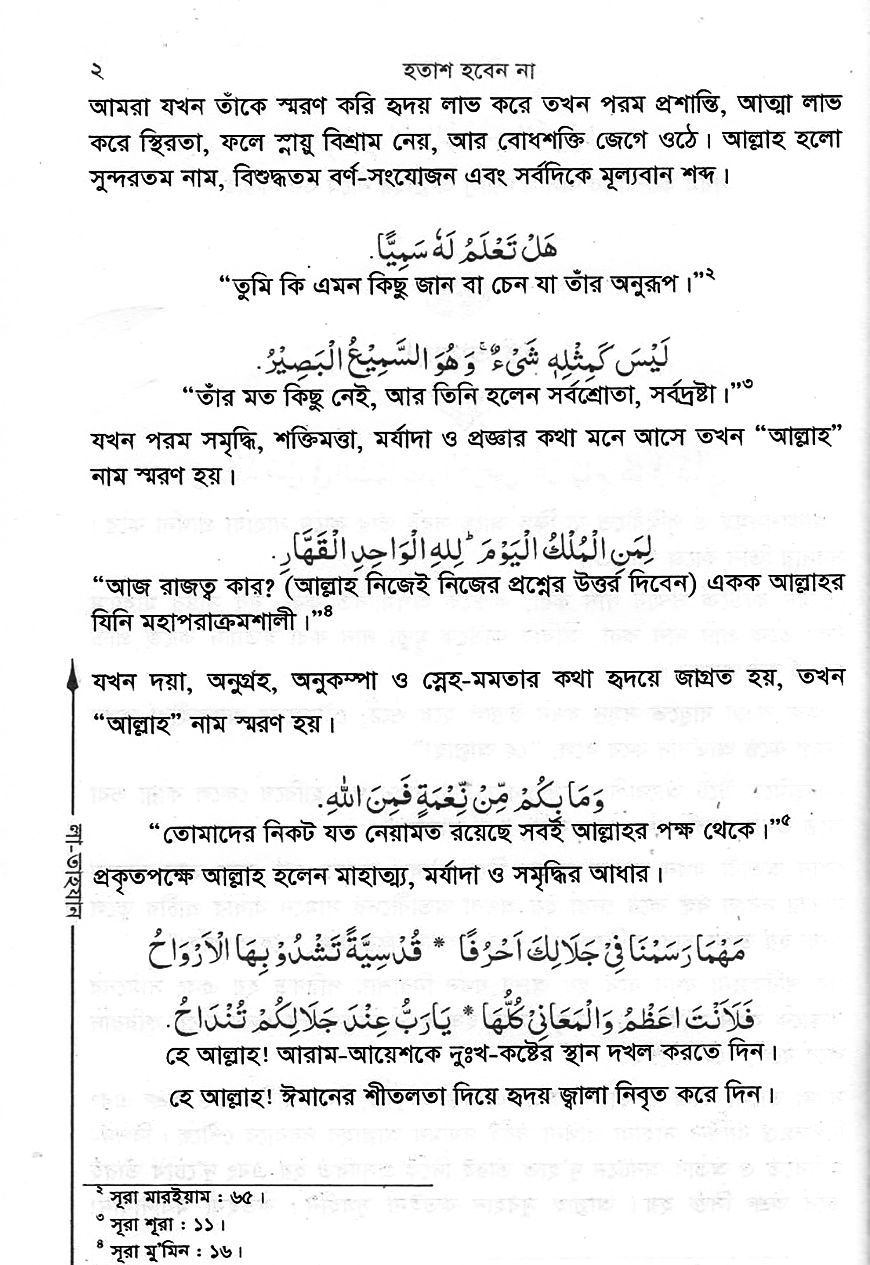 ২
হতাশ হবেন না
আমরা যখন তাঁকে স্মরণ করি হৃদয় লাভ করে তখন পরম প্রশান্তি, আত্মা লাভ
করে স্থিরতা, ফলে স্নায়ু বিশ্রাম নেয়, আর বোধশক্তি জেগে ওঠে। আল্লাহ হলো
সুন্দরতম নাম, বিশুদ্ধতম বর্ণ-সংযোজন এবং সর্বদিকে মূল্যবান শব্দ।
هَلْ تَعْلَمُ لَهٗ سَمِيًّا.
“তুমি কি এমন কিছু জান বা চেন যা তাঁর অনুরূপ।”২
لَيْسَ كَمِثْلِهٖ شَيْءٌ ۚ وَهُوَ السَّمِيْعُ الْبَصِيْرُ.
“তাঁর মত কিছু নেই, আর তিনি হলেন সর্বশ্রোতা, সর্বদ্রষ্টা।”৩
যখন পরম সমৃদ্ধি, শক্তিমত্তা, মর্যাদা ও প্রজ্ঞার কথা মনে আসে তখন “আল্লাহ”
নাম স্মরণ হয়।
لِمَنِ الْمُلْكُ الْيَوْمَ ؕ لِلّٰهِ الْوَاحِدِ الْقَهَّارِ.
“আজ রাজত্ব কার? (আল্লাহ নিজেই নিজের প্রশ্নের উত্তর দিবেন) একক আল্লাহর
যিনি মহাপরাক্রমশালী।”৪
যখন দয়া, অনুগ্রহ, অনুকম্পা ও স্নেহ-মমতার কথা হৃদয়ে জাগ্রত হয়, তখন
“আল্লাহ” নাম স্মরণ হয়।
وَمَا بِكُمْ مِّنْ نِّعْمَةٍ فَمِنَ اللهِ.
“তোমাদের নিকট যত নেয়ামত রয়েছে সবই আল্লাহর পক্ষ থেকে।”৫
প্রকৃতপক্ষে আল্লাহ হলেন মাহাত্ম্য, মর্যাদা ও সমৃদ্ধির আধার।
مَهْمَا رَسَمْنَا فِيْ جَلَالِكَ اَحْرُفًا * قُدْسِيَّةً تَشْدُوْ بِهَا الْاَرْوَاحُ
فَلَاَنْتَ اَعْظَمُ وَالْمَعَانِيْ كُلُّهَا * يَارَبُّ عِنْدَ جَلَالِكُمْ تُنْدَاحُ.
হে আল্লাহ! আরাম-আয়েশকে দুঃখ-কষ্টের স্থান দখল করতে দিন।
হে আল্লাহ! ঈমানের শীতলতা দিয়ে হৃদয় জ্বালা নিবৃত করে দিন।
লা-তাহযান
২ সূরা মারইয়াম : ৬৫।
৩ সূরা শূরা : ১১।
৪ সূরা মু'মিন : ১৬।